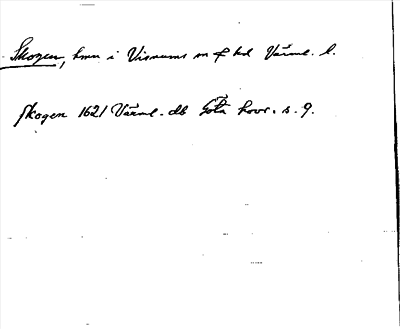 Skogen, hmn i Visnums sn o hd Värml. l.
Skogen 1621 Värml. db Göta hovr. s. 9.